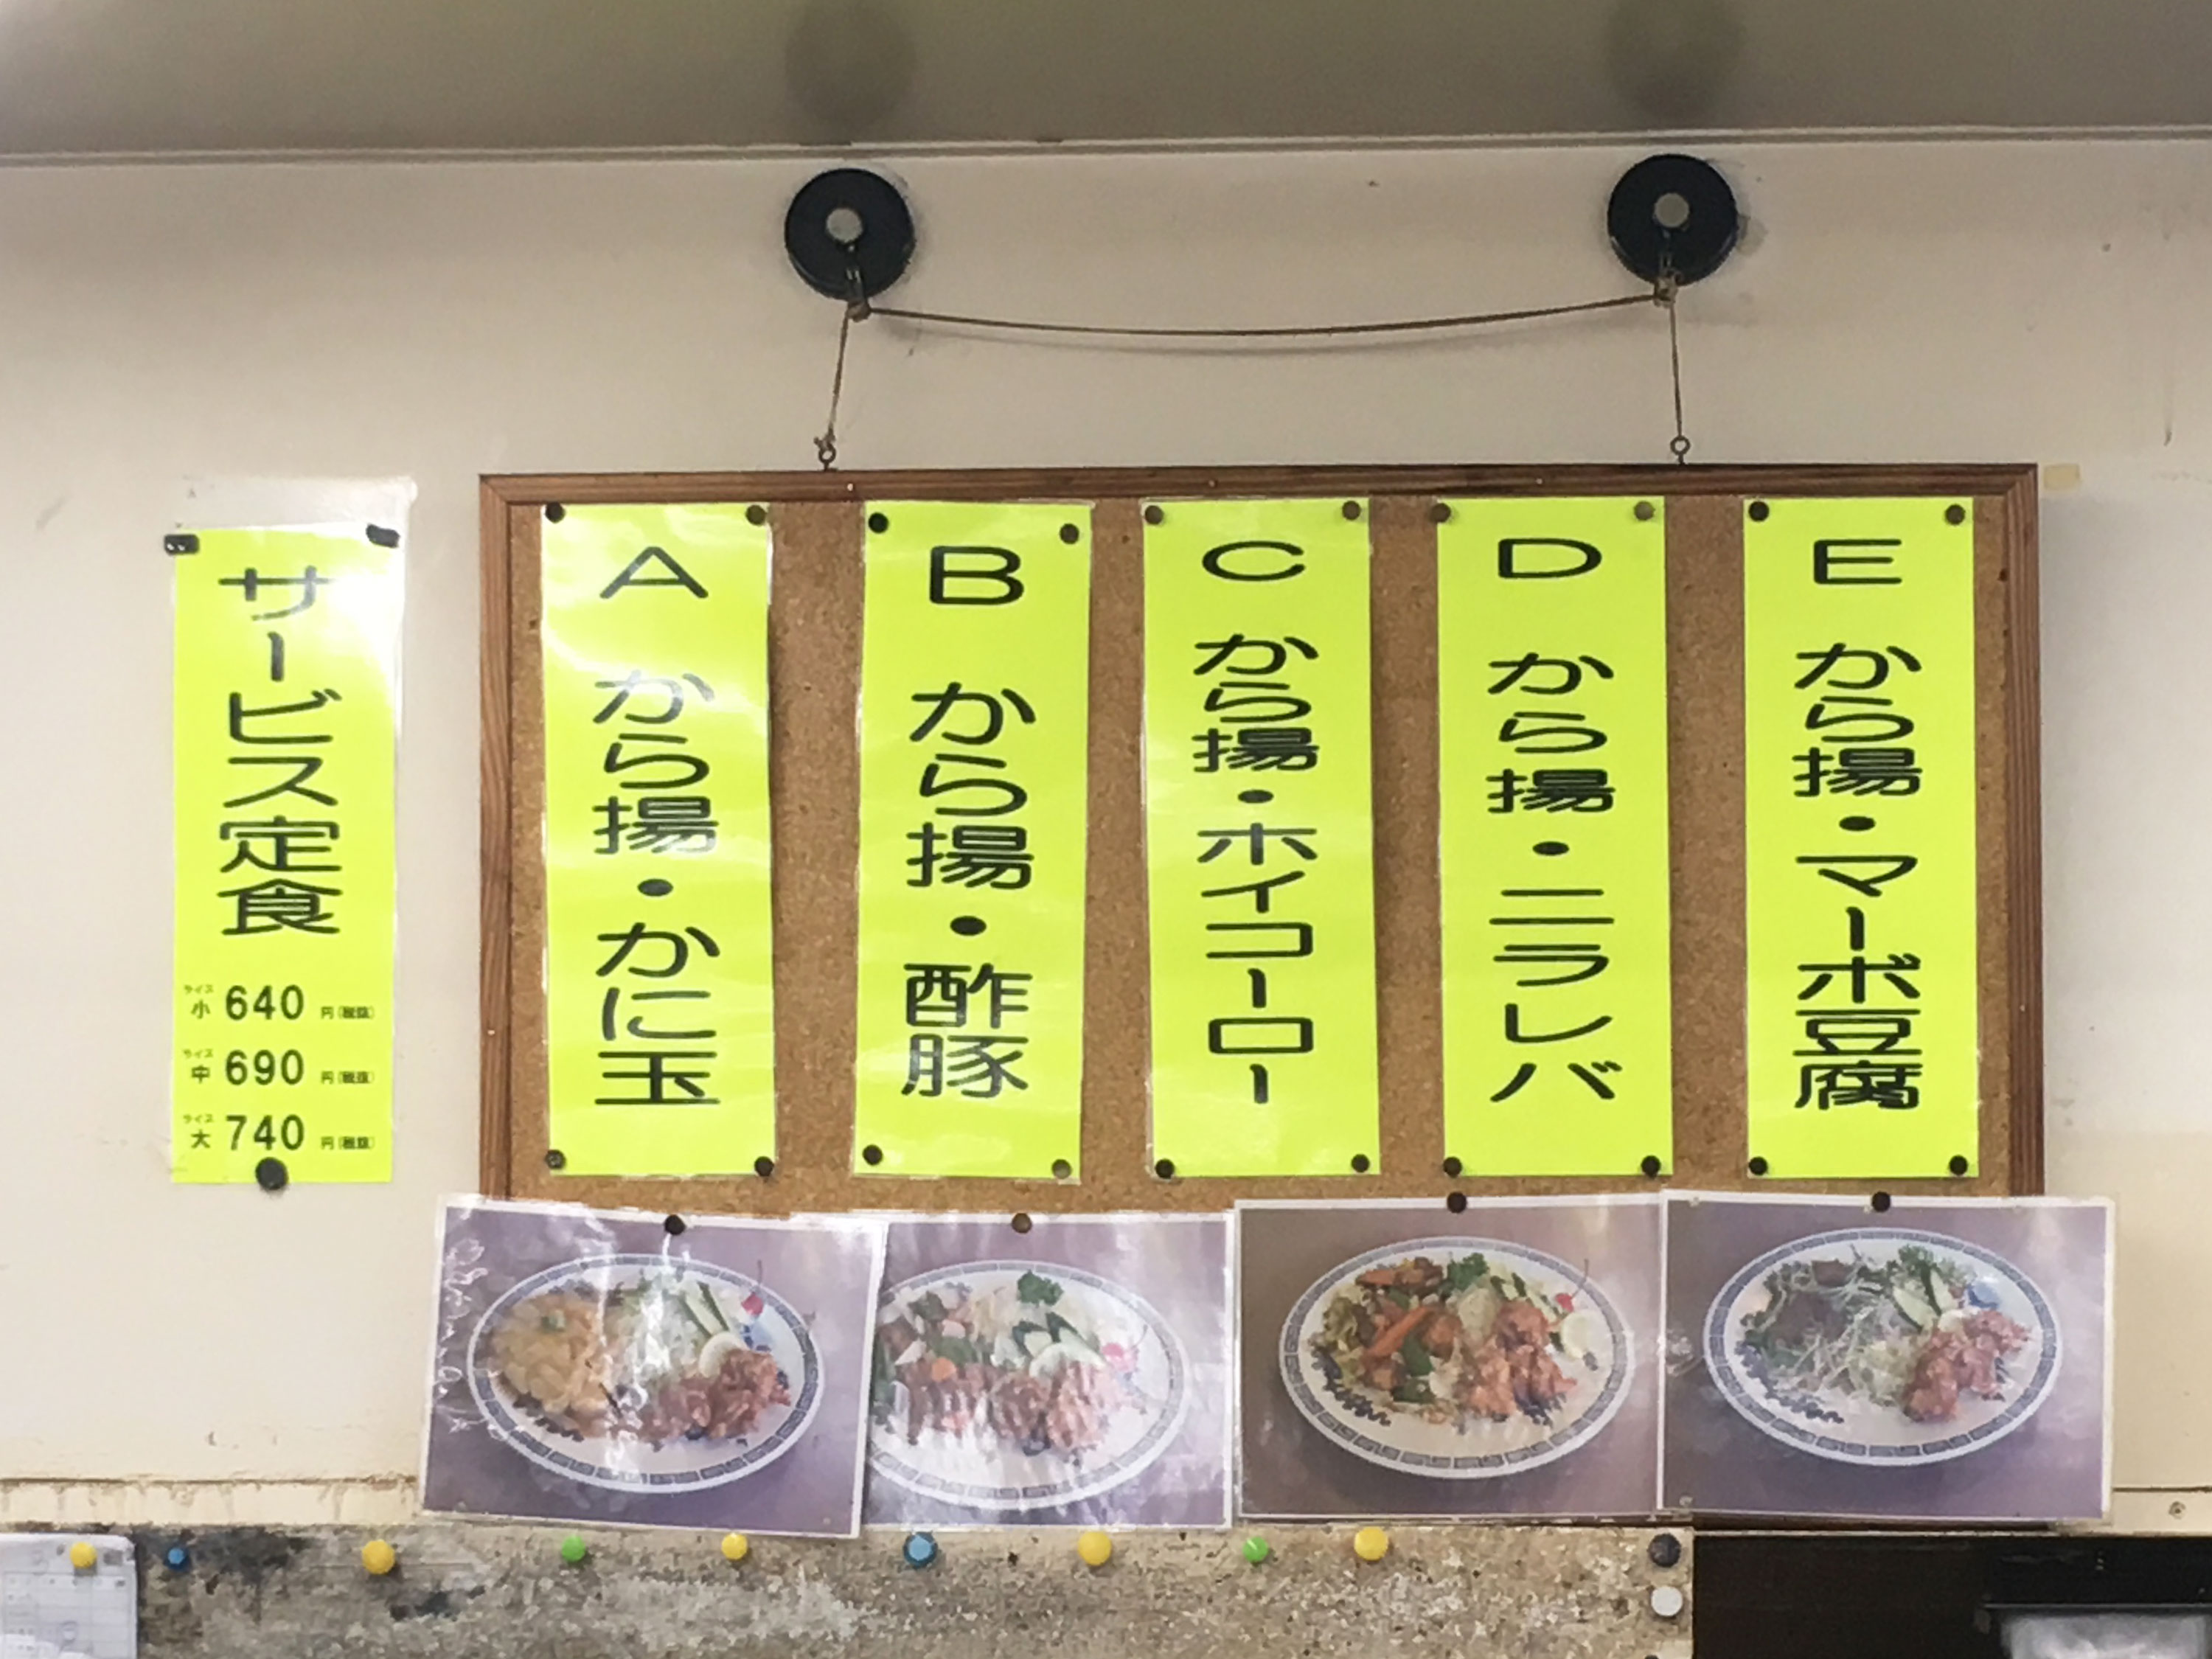 サービス定食
ライス小 640円(税抜)
ライス中 690円(税抜)
ライス大 740円(税抜)
A から揚・かに玉
B から揚・酢豚
C から揚・ホイコーロー
D から揚・ニラレバ
E から揚・マーボ豆腐